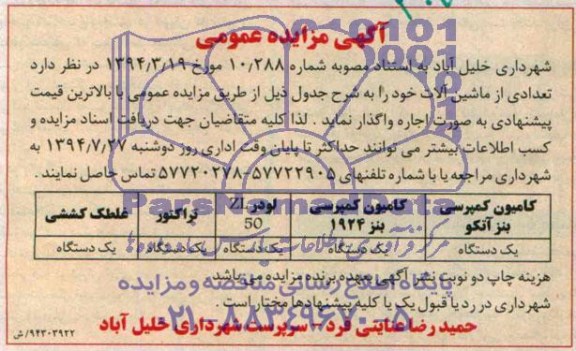 آگهی مزایده عمومی
شهرداری خلیل آباد به استناد مصوبه شماره ۱۰,۲۸۸ مورخ ۱۳۹۴/۳/۱۹ در نظر دارد
تعدادی از ماشین آلات خود را به شرح جدول ذیل از طریق مزایده عمومی با بالاترین قیمت
پیشنهادی به صورت اجاره واگذار نماید . لذا کلیه متقاضیان جهت دریافت اسناد مزایده و
کسب اطلاعات بیشتر می توانند حداکثر تا پایان وقت اداری روز دوشنبه ۱۳۹۴/۷/۲۷ به
شهرداری مراجعه یا با شماره تلفنهای ۵۷۷۲۲۹۰۵-۵۷۷۲۰۲۷۸ تماس حاصل نمایند .
کامیون کمپرسی بنز آتکو | کامیون کمپرسی بنز ۱۹۲۴ | لودر ZL 50 | تراکتور | غلطک کششی
یک دستگاه | یک دستگاه | یک دستگاه | یک دستگاه | یک دستگاه
ParsNamad Data
هزینه چاپ دو نوبت نشر آگهی بعهده برنده مزایده می باشد.
پایگاه اطلاع رسانی مناقصه و مزایده
شهرداری در رد یا قبول یک یا کلیه پیشنهادها مختار است .
حمید رضا عنایتی فرد - سرپرست شهرداری خلیل آباد
۰۲۱-۸۸۳۴۹۶۷۰-۵
۹۴۳۰۳۹۲۲/ش